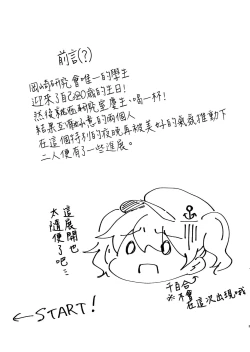 前言(?)
岡崎研究會唯一的學生
迎來了自己20歲的生日!
然後就在研究室慶生、喝一杯!
結果互懷好意的兩個人
在這個特別的夜晚再被美好的氣氛推動下
二人便有了一些進展。
這展開也
太隨便了吧…
千百合
※不會
在這次出現哦
←START!